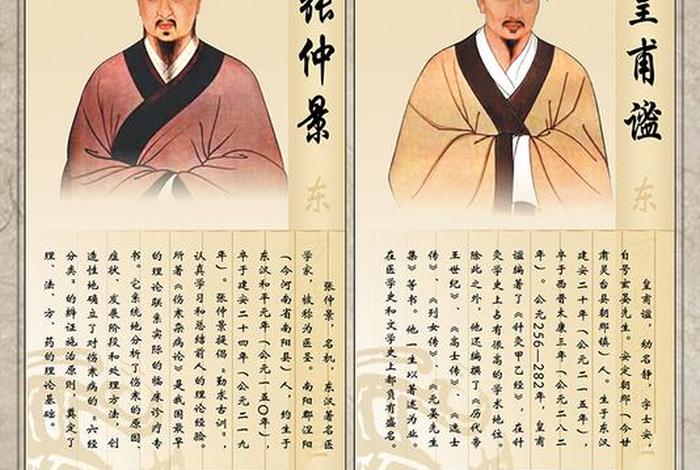 张仲景
东
张仲景,名机,东汉著名医
学家,被称为医圣。南阳郡涅阳
(今河南省南阳县)人,约生于
东汉和平元年(公元一五〇年),
卒于建安二十四年(公元二一九
年)。张仲景提倡“勤求古训”,
认真学习和总结前人的理论经验。
所著《伤寒杂病论》是我国最早
的理论联系实际的临床诊疗专
书。它系统地分析了伤寒的原因、
症状、发展阶段和处理方法,创
造性地确立了对伤寒病的“六经
分类”的辨证施治原则,奠定了
理、法、方、药的理论基础。
皇甫谧
东
皇甫谧,幼名静,字士安,
自号玄晏先生。安定朝那(今甘
肃灵台县朝那镇)人。生于东汉
建安二十年(公元二一五年),
卒于西晋太康三年(公元二八二
年)。公元256—282年,皇甫
谧编著了《针灸甲乙经》,在针
灸学史上占有很高的学术地位。
除此之外,他还编撰了《历代帝
王世纪》、《高士传》、《逸士
传》、《列女传》、《元晏先生
集》等书。他一生以著述为业,
在医学史和文学史上都负有盛名。